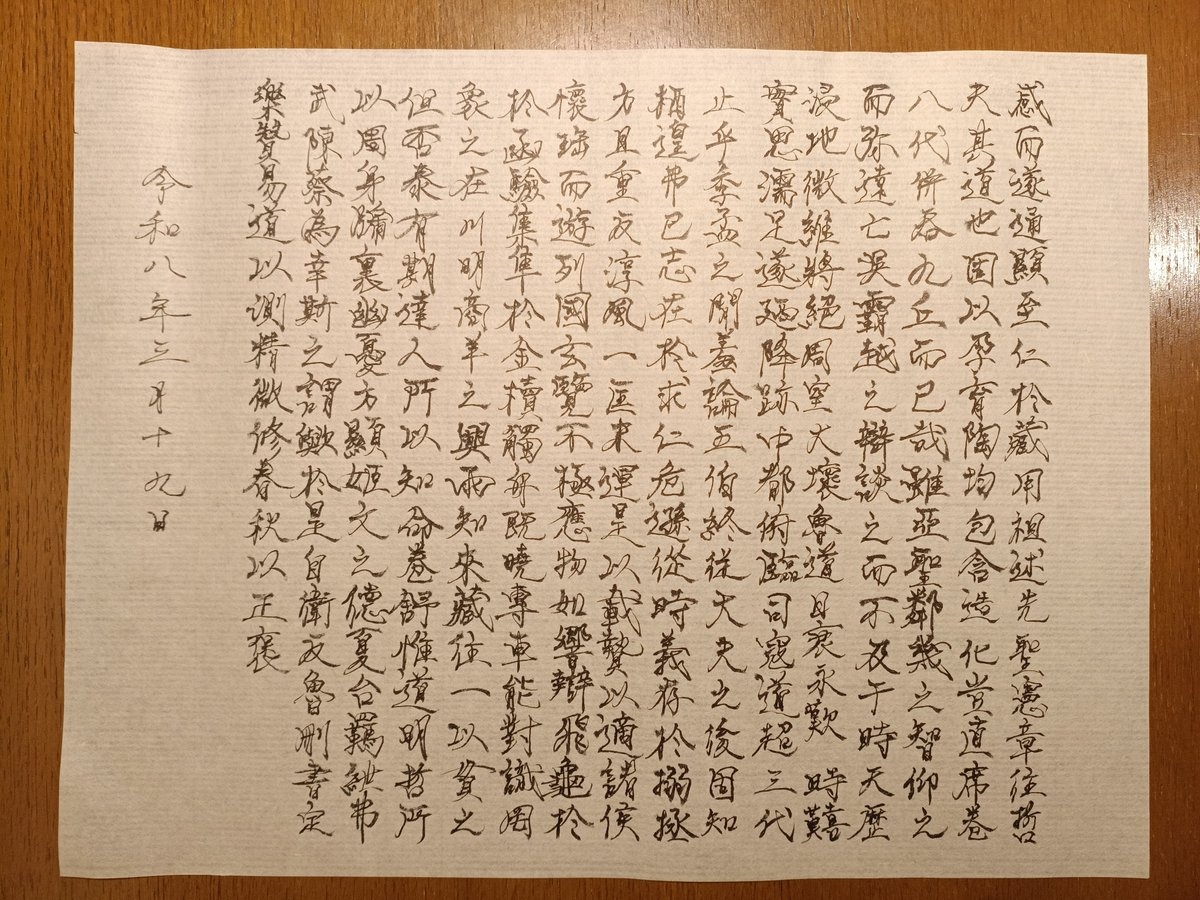 感而遂通顯至仁於藏用祖述先聖憲章往哲
夫其道也固以孕育陶均包含造化豈直席卷
八代併吞九丘而已哉雖亞聖鄰幾之智仰之
而弥遠亡吳霸越之辯談之而不及于時天歷
浸地微維將絕周室大壞魯道日衰永歎時艱
實思濡足遂廼降跡中都俯臨司寇道超三代
止乎季孟之間羞論五伯終従大夫之後固知
栖遑弗已志在於求仁危遜從時義存於搦拯
方且重反淳風一匡末運是以載贄以適諸侯
懷珤而遊列國玄覽不極應物如響辯飛龜於
於函驗集隼於金櫝觸舟既曉專車能對識罔
象之在川明商羊之興雨知來藏往一以貫之
但否泰有期達人所以知命卷舒惟道明哲所
以周身牖裏幽憂方顯姬文之德夏台羈紲弗
武陳蔡為幸斯之謂歟於是自衛反魯刪書定
樂贊易道以測精微修春秋以正褒
令和八年三月十九日